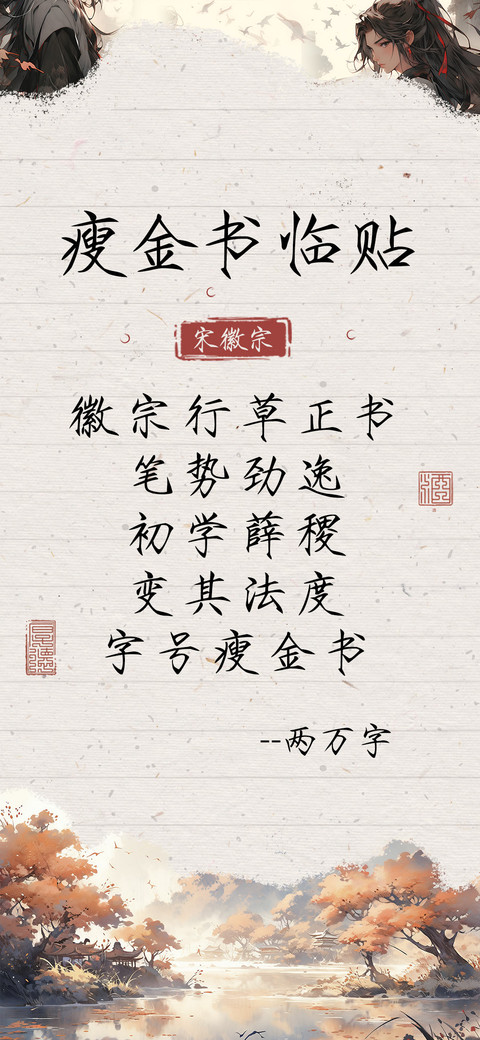 瘦金书临贴
宋徽宗
徽宗行草正书
笔势劲逸
初学薛稷
变其法度
字号瘦金书
--两万字